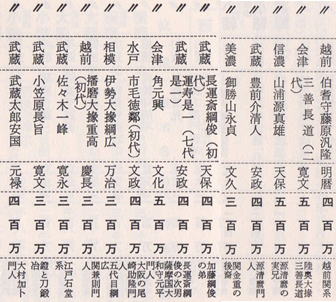 〃 越前 伯耆守藤原汎隆 明暦 四百万 越前関系
〃 会津 三善長道（二代） 寛文 四百万 陸奥大掾三善長道
〃 信濃 山浦源真雄 安政 四百万 源清麿の実兄
〃 武蔵 豊前介清人 安政 四百万 源清麿門人
〃 美濃 御勝山永貞 文久 四百万 金重の後裔
〃 武蔵 長運斎綱俊（初代） 天保 四百万 加藤綱俊の弟
〃 武蔵 運寿是一（七代是一） 安政 四百万 長運斎綱俊の次男
〃 会津 角元興 文化 四百万 薩摩国和守元平門人
〃 水戸 市毛徳鄰（初代） 文政 四百万 大阪の尾崎助隆門人
〃 相模 伊勢大掾綱広 万治 四百万 五代目綱広
〃 越前 播磨大掾重高（初代） 慶長 四百万 関兼則門人
〃 武蔵 佐々木一峰 寛永 四百万 江戸石堂系
〃 武蔵 小笠原長旨 寛文 四百万 鐔と刀鍛冶
〃 武蔵 武蔵太郎安国 元禄 四百万 大村加卜門人